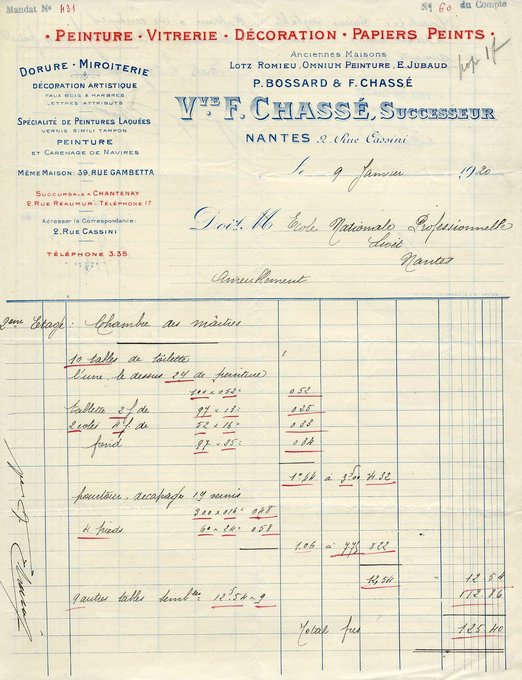 Mandat No 431
No 60 du Compte
• PEINTURE • VITRERIE • DÉCORATION • PAPIERS PEINTS •
DORURE • MIROITERIE
DÉCORATION ARTISTIQUE
FAUX BOIS & MARBRES
LETTRES ATTRIBUTS
SPÉCIALITÉ DE PEINTURES LAQUÉES
VERNIS SIMILI TAMPON
PEINTURE
ET CARENAGE DE NAVIRES
MÊME MAISON: 39, RUE GAMBETTA
SUCCURSALE À CHANTENAY
2 RUE REAUMUR - TÉLÉPHONE 17
Adresser la Correspondance:
2, RUE CASSINI
TÉLÉPHONE 3.35
Anciennes Maisons
LOTZ ROMIEU, OMNIUM PEINTURE, E. JUBAUD
P. BOSSARD & F. CHASSÉ
VVE F. CHASSÉ, SUCCESSEUR
NANTES 2, Rue Cassini
Le 9 Janvier 1920
Doit M Ecole Nationale Professionnelle
Livet
Nantes
Ameublement
2eme Etage: Chambre des maîtres
10 tables de toilette
l'une, le dessus 24 de peinture
101 x 052 = 0.52
tablette 2 f de 97 x 13 = 0.25
2 cotés 4 f de 52 x 16 =
fond 97 x 85 = 0.84
à 3f00 4 32
pourtour, decapage 19 
300 x 016 = 048
4 pieds 60 x 24 = 0.58
1,06 à 8 22
12,54 12 54
9 autres tables sembles 12f54 x 9 112 86
Total frs 125 40